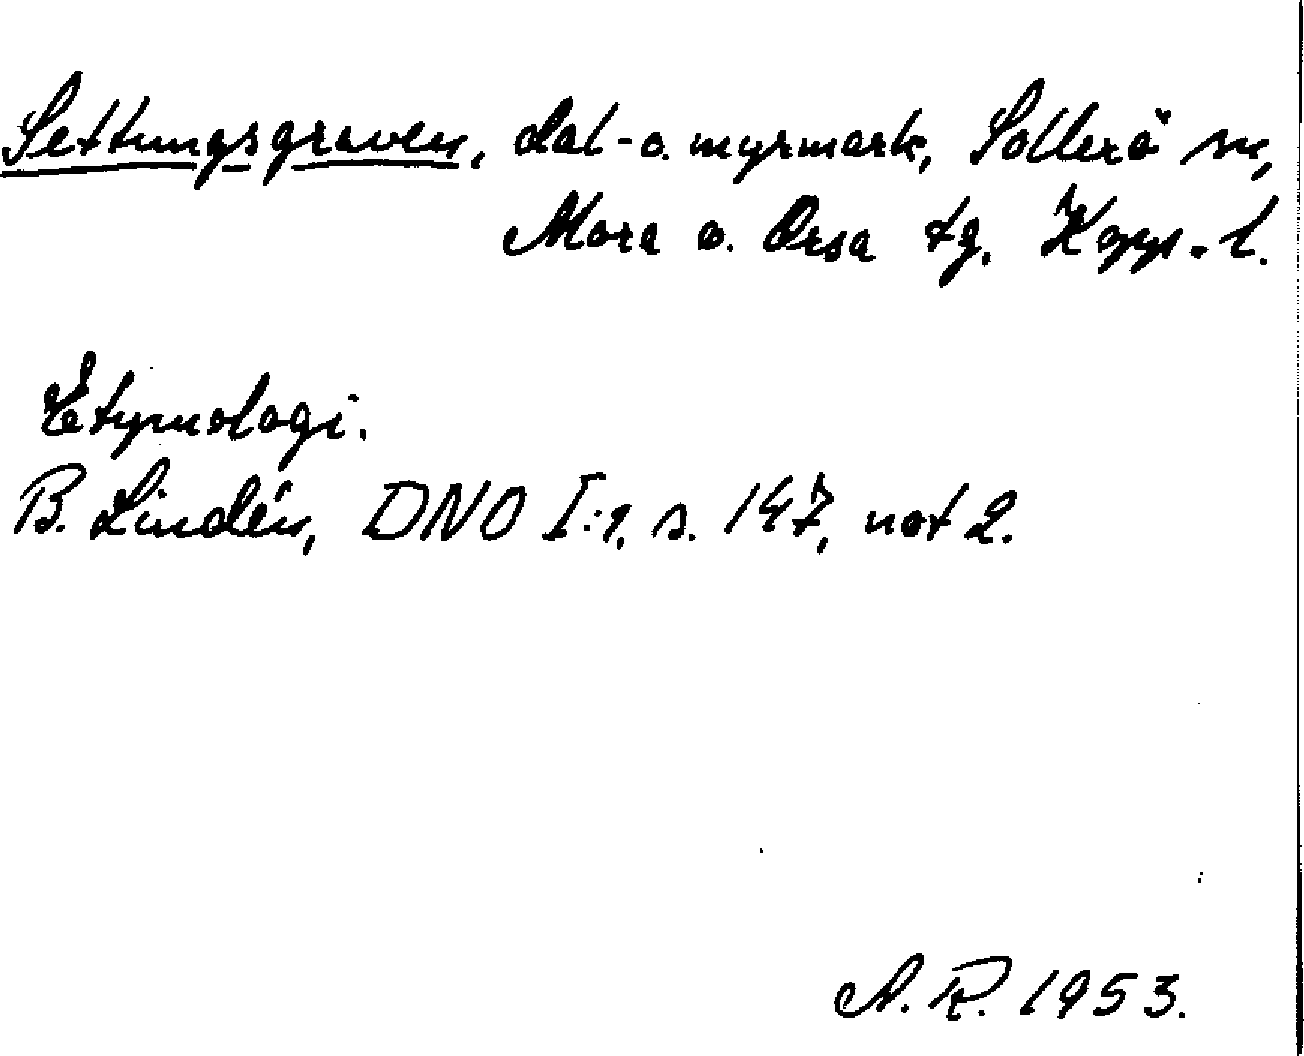 Settungsgraven, dal- o. myrmark, Sollerö sn,
Mora o. Orsa tg, Kopp. l.
Etymologi.
B. Lindén, DNO I:1, s. 147, not 2.
A. R. 1953.